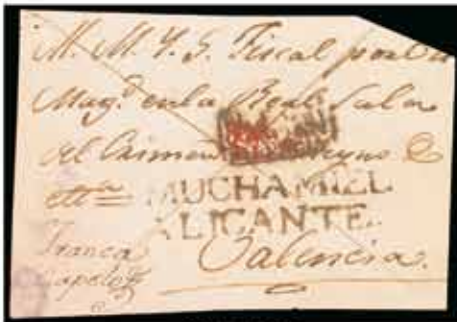 M. M. Y. S. Fiscal por su
Mag.d en la Real Sala
del Crimen Reyno &
etta
MUCHAMIEL
ALICANTE.
Valencia.
Franca